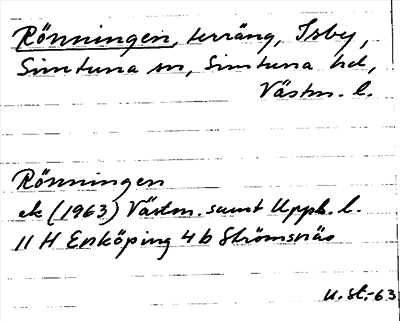 Rönningen, terräng, Isby,
Simtuna sn, Simtuna hd,
Västm. l.
Rönningen
ek (1963) Västm. samt Uppl. l.
11 H Enköping 4 b Strömsnäs
U.St.-63